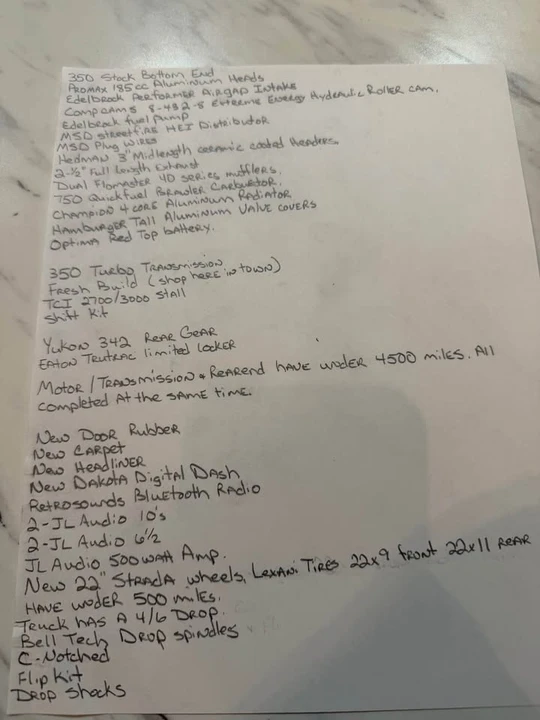 350 Stock Bottom End
PROMAX 185cc Aluminum Heads
Edelbrock PERFORMER AIRGAP INTAKE
COMP CAMS 8-432-8 EXTREME Energy Hydraulic Roller CAM.
Edelbrock fuel pump
MSD STREETFIRE HEI Distributor
MSD Plug WIRES
HEDMAN 3" Midlength ceramic coated Headers
2-½" Full Length Exhaust
Dual Flomaster 40 series mufflers.
750 Quickfuel BRAWLER CARBURETOR.
CHAMPION 4 CORE Aluminum RADIATOR
HAMBURGER TALL Aluminum VALVE COVERS
OPTIMA Red Top battery.
350 Turbo TRANSMISSION
FRESH Build (shop here in town)
TCI 2700/3000 stall
Shift Kit
Yukon 342 REAR GEAR
EATON TRUTRAC limited locker
MOTOR / TRANSMISSION & REAREND HAVE UNDER 4500 miles. All
completed At the SAME time.
NEW DOOR Rubber
New CARPET
NEW HEADLINER
NEW DAKOTA Digital DASH
RETROSOUNDS Bluetooth Radio
2-JL Audio 10's
2-JL Audio 6½
JL Audio 500 WATT Amp.
New 22" STRADA wheels, LEXANI TIRES 22x9 front 22x11 REAR
HAVE UNDER 500 miles.
TRUCK HAS A 4/6 DROP.
Bell Tech DROP spindles
C-Notched
Flip Kit
DROP Shocks